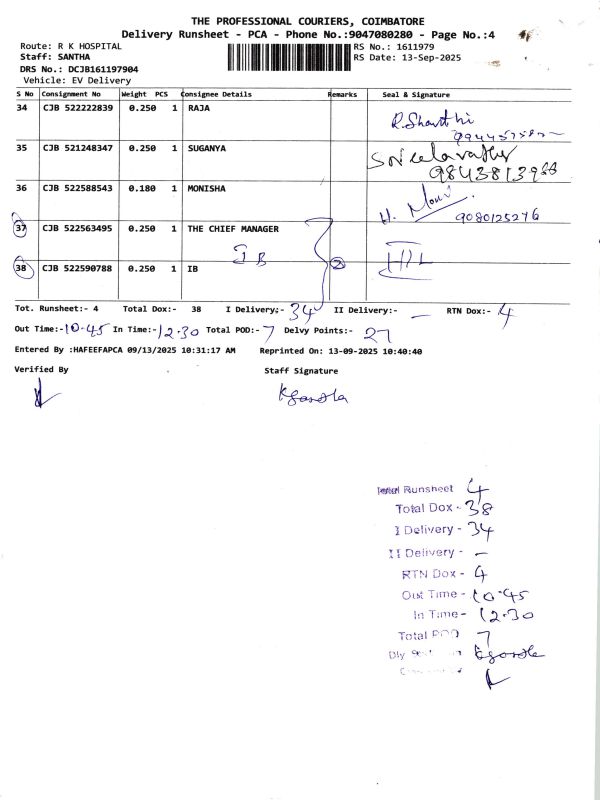 THE PROFESSIONAL COURIERS, COIMBATORE
Delivery Runsheet - PCA - Phone No.:9047080280 - Page No.:4
Route: R K HOSPITAL RS No.: 1611979
Staff: SANTHA RS Date: 13-Sep-2025
DRS No.: DCJB161197904
Vehicle: EV Delivery
S No Consignment No Weight PCS Consignee Details Remarks Seal & Signature
34 CJB 522222839 0.250 1 RAJA
35 CJB 521248347 0.250 1 SUGANYA
36 CJB 522588543 0.180 1 MONISHA
9080125276
37 CJB 522563495 0.250 1 THE CHIEF MANAGER
IB
38 CJB 522590788 0.250 1 IB 2
Tot. Runsheet:- 4 Total Dox:- 38 I Delivery:- 34 II Delivery:- — RTN Dox:- 4
Out Time:- 10-45 In Time:- 12.30 Total POD:- 7 Delvy Points:- 27
Entered By :HAFEEFAPCA 09/13/2025 10:31:17 AM Reprinted On: 13-09-2025 10:40:40
Verified By Staff Signature
Runsheet 4
Total Dox - 38
I Delivery - 34
II Delivery - —
RTN Dox - 4
Out Time - 10-45
In Time - 12.30
Total POD 7
Dly